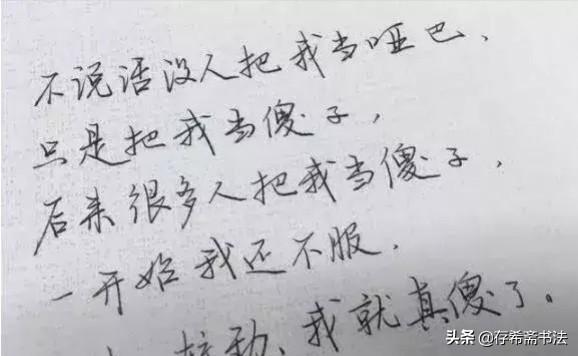 不说话没人把我当哑巴、
只是把我当傻子,
后来很多人把我当傻子,
一开始我还不服.
我就真傻了。
头条 @存希斋书法